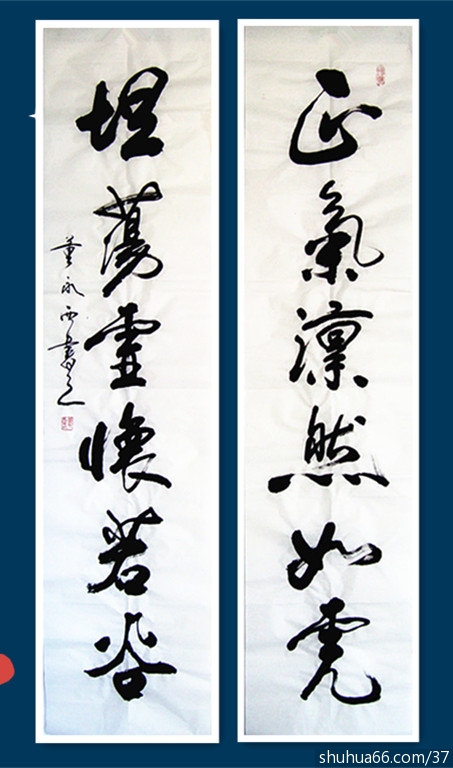 正氣凛然如虎
坦蕩虚懷若谷
董永西書之
shuhua66.com/37